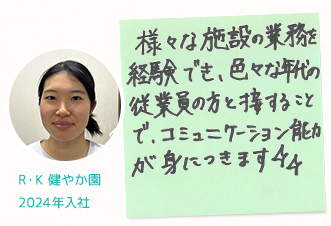 様々な施設の業務を
経験でき、色々な年代の
従業員の方と接すること
で、コミュニケーション能力
が身につきます
R・K 健やか園
2024年入社